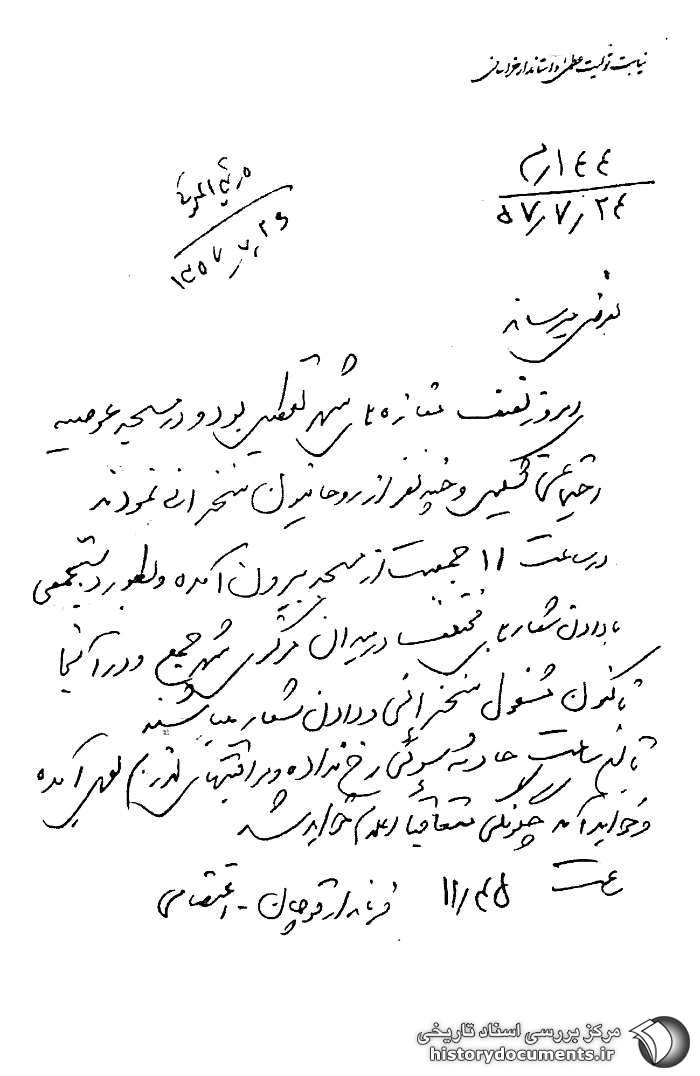 نیابت تولیت عظمی و استاندار خراسان
۱۴۴/م
۵۷/۷/۲۴
۱۳۵۷/۷/۲۶
بعرض میرساند
امروز نصف مغازه های شهر تعطیل بود و در مسجد عوضیه
اجتماعی تشکیل و چند نفر از روحانیون سخنرانی نمودند
در ساعت ۱۱ جمعیت از مسجد بیرون آمده و بطور دستجمعی
با دادن شعارهای مختلف در میدان مرکزی شهر جمع و در آنجا
تاکنون مشغول سخنرانی و دادن شعار میباشند
تا این ساعت حادثه سوئی رخ نداده و مراقبتهای لازم بعمل آمده
و خواهد آمد چگونگی متعاقبا اعلام خواهد شد
ساعت ۱۱/۴۵ فرماندار قوچان - اعتصامی
مرکز بررسی اسناد تاریخی
historydocuments.ir